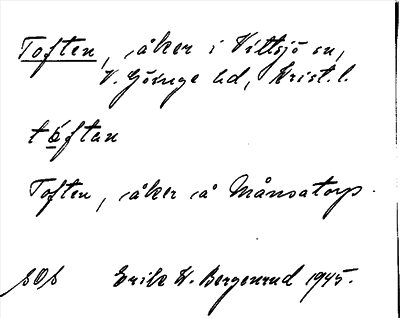 Toften, åker i Vittsjö sn,
V. Göinge hd, Krist. l.
tåftan
Toften, åker å Månsatorp.
SOS Erik H. Bergenrud 1945.